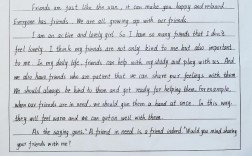 Friends are just like the sun, it can make you happy and relaxed.
Everyone has friends. We are all growing up with our friends.
I am an active and lovely girl. So I have so many friends that I don't
feel lonely. I think my friends are not only kind to me but also important
to me. In my daily life, friends can help with my study and play with us. And
we also have friends who are patient that we can share your feelings with them.
We should always be kind to them and get ready for helping them. For example,
when our friends are in need, we should give them a hand at once. In this way,
they will feel warm and we can get on well with them.
As the saying goes: "A friend in need is a friend indeed." Would you mind sharing
your friends with me?